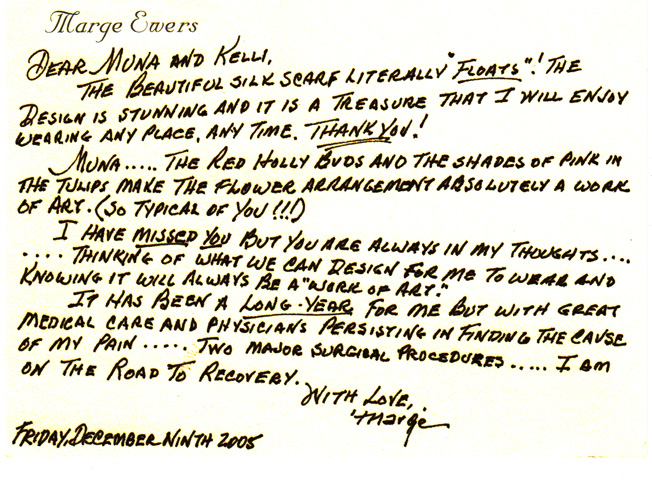 Marge Ewers
DEAR MUNA AND KELLI,
THE BEAUTIFUL SILK SCARF LITERALLY "FLOATS"! THE
DESIGN IS STUNNING AND IT IS A TREASURE THAT I WILL ENJOY
WEARING ANY PLACE, ANY TIME. THANK YOU!
MUNA..... THE RED HOLLY BUDS AND THE SHADES OF PINK IN
THE TULIPS MAKE THE FLOWER ARRANGEMENT ABSOLUTELY A WORK
OF ART. (SO TYPICAL OF YOU!!!)
I HAVE MISSED YOU BUT YOU ARE ALWAYS IN MY THOUGHTS....
.... THINKING OF WHAT WE CAN DESIGN FOR ME TO WEAR AND
KNOWING IT WILL ALWAYS BE A "WORK OF ART."
IT HAS BEEN A LONG-YEAR FOR ME BUT WITH GREAT
MEDICAL CARE AND PHYSICIANS PERSISTING IN FINDING THE CAUSE
OF MY PAIN ..... TWO MAJOR SURGICAL PROCEDURES..... I AM
ON THE ROAD TO RECOVERY.
WITH LOVE,
Marge
FRIDAY, DECEMBER NINTH 2005